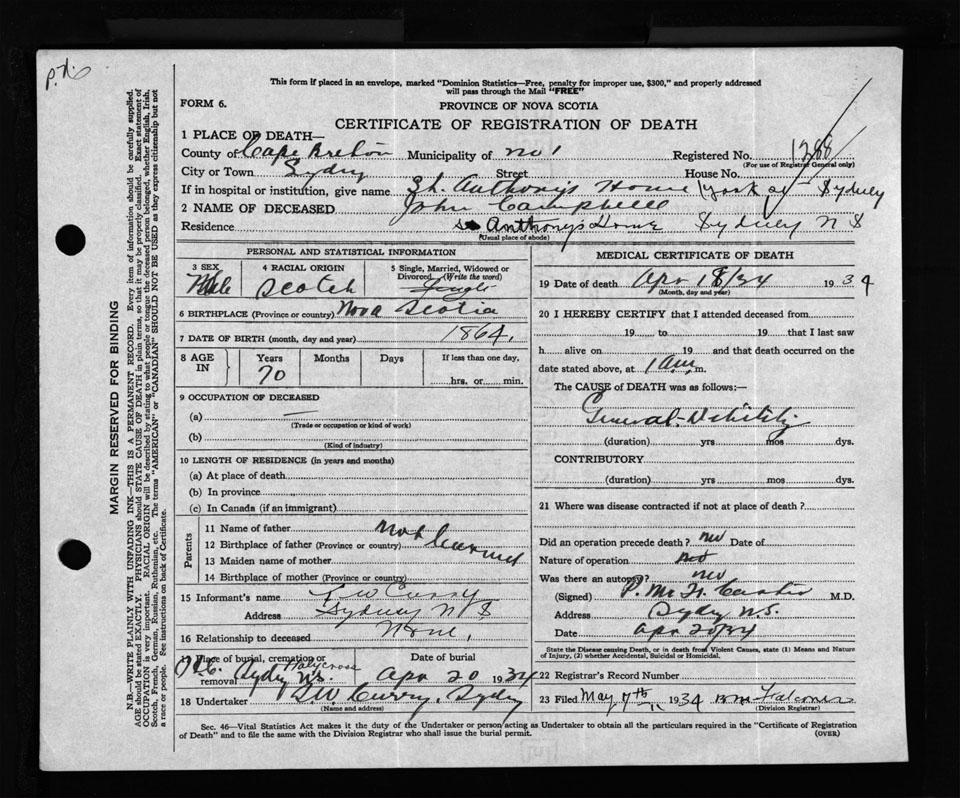 This form if placed in an envelope, marked "Dominion Statistics—Free, penalty for improper use, $300," and properly addressed
will pass through the Mail "FREE"
FORM 6.
PROVINCE OF NOVA SCOTIA
CERTIFICATE OF REGISTRATION OF DEATH
MARGIN RESERVED FOR BINDING
N.B.—WRITE PLAINLY WITH UNFADING INK—THIS IS A PERMANENT RECORD. Every item of information should be carefully supplied.
AGE should be stated EXACTLY. PHYSICIANS should STATE CAUSE OF DEATH in plain terms, so that it may be properly classified. Exact statement of
OCCUPATION is very important. RACIAL ORIGIN will be described by stating to what people or tongue the deceased person belonged, whether English, Irish,
Scotch, French, German, Russian, Ruthenian, etc. The terms "AMERICAN" or "CANADIAN" SHOULD NOT BE USED as they express citizenship but not
a race or people. See instructions on back of Certificate.
1 PLACE OF DEATH—
County of Cape Breton Municipality of No 1 Registered No. 1288
(For use of Registrar General only)
City or Town Sydney Street House No.
If in hospital or institution, give name St. Anthony's Home York St Sydney
2 NAME OF DECEASED John Campbell
Residence St Anthony's Home Sydney N S
(Usual place of abode)
PERSONAL AND STATISTICAL INFORMATION
3 SEX Male
4 RACIAL ORIGIN Scotch
5 Single, Married, Widowed or Divorced (Write the word) Single
6 BIRTHPLACE (Province or country) Nova Scotia
7 DATE OF BIRTH (month, day and year) 1864.
8 AGE IN Years 70 Months Days If less than one day,
hrs. or min.
9 OCCUPATION OF DECEASED
(a) —
(Trade or occupation or kind of work)
(b)
(Kind of industry)
10 LENGTH OF RESIDENCE (in years and months)
(a) At place of death
(b) In province
(c) In Canada (if an immigrant)
Parents
11 Name of father Not
12 Birthplace of father (Province or country) learned
13 Maiden name of mother
14 Birthplace of mother (Province or country)
15 Informant's name Curry
Address Sydney N S
16 Relationship to deceased None,
17 Place of burial, cremation or removal Holy Cross Sydney N.S.
Date of burial Apr 20 1934
18 Undertaker Curry, Sydney
(Name and address)
MEDICAL CERTIFICATE OF DEATH
19 Date of death Apr 18/34 1934
(Month, day and year)
20 I HEREBY CERTIFY that I attended deceased from
19 to 19 that I last saw
h alive on 19 and that death occurred on the
date stated above, at 1 a.m. m.
The CAUSE of DEATH was as follows:—
General Debility
(duration) yrs mos dys.
CONTRIBUTORY
(duration) yrs mos dys.
21 Where was disease contracted if not at place of death?
Did an operation precede death? no Date of
Nature of operation no
Was there an autopsy? no
(Signed) M.D.
Address Sydney N.S.
Date Apr 20/34
State the Disease causing Death, or in death from Violent Causes, state (1) Means and Nature
of Injury, (2) whether Accidental, Suicidal or Homicidal.
22 Registrar's Record Number
23 Filed May 7th 1934 Falconer
(Division Registrar)
Sec. 46—Vital Statistics Act makes it the duty of the Undertaker or person acting as Undertaker to obtain all the particulars required in the "Certificate of Registration
of Death" and to file the same with the Division Registrar who shall issue the burial permit.
(OVER)